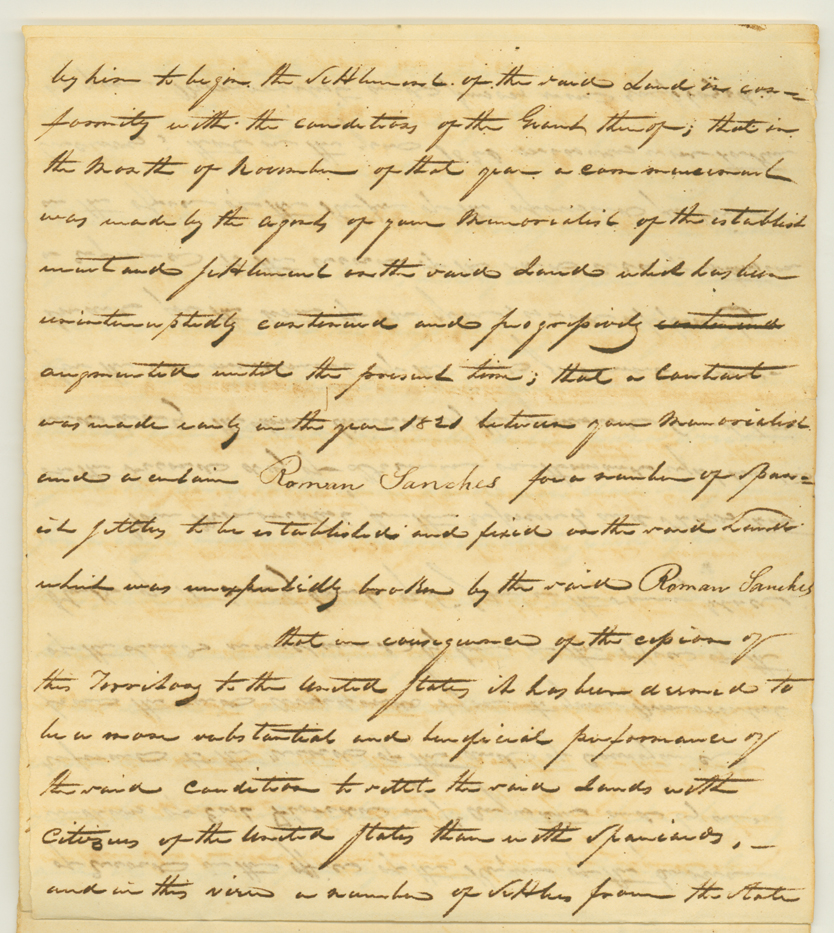 by him to begin the Settlement of the said Land in con=
formity with the conditions of the Grant thereof; that in
the Month of November of that year a commencement
was made by the Agents of your Memorialist of the establish
ment and settlement on the said Land which has been
uninteruptedly continued and progressively continued
augmented until the present time; that a Contract
was made early in the year 1821 between your Memorialist
and a certain Roman Sanches for a number of Span=
ish settlers to be established and fixed on the said Lands
which was unexpectedly broken by the said Roman Sanches
that in consequence of the cession of
this Territory to the United States it has been deemed to
be a more substantial and beneficial performance of
the said condition to settle the said Lands with
Citizens of the United States than with Spaniards, _
and in this view a number of Settlers from the State